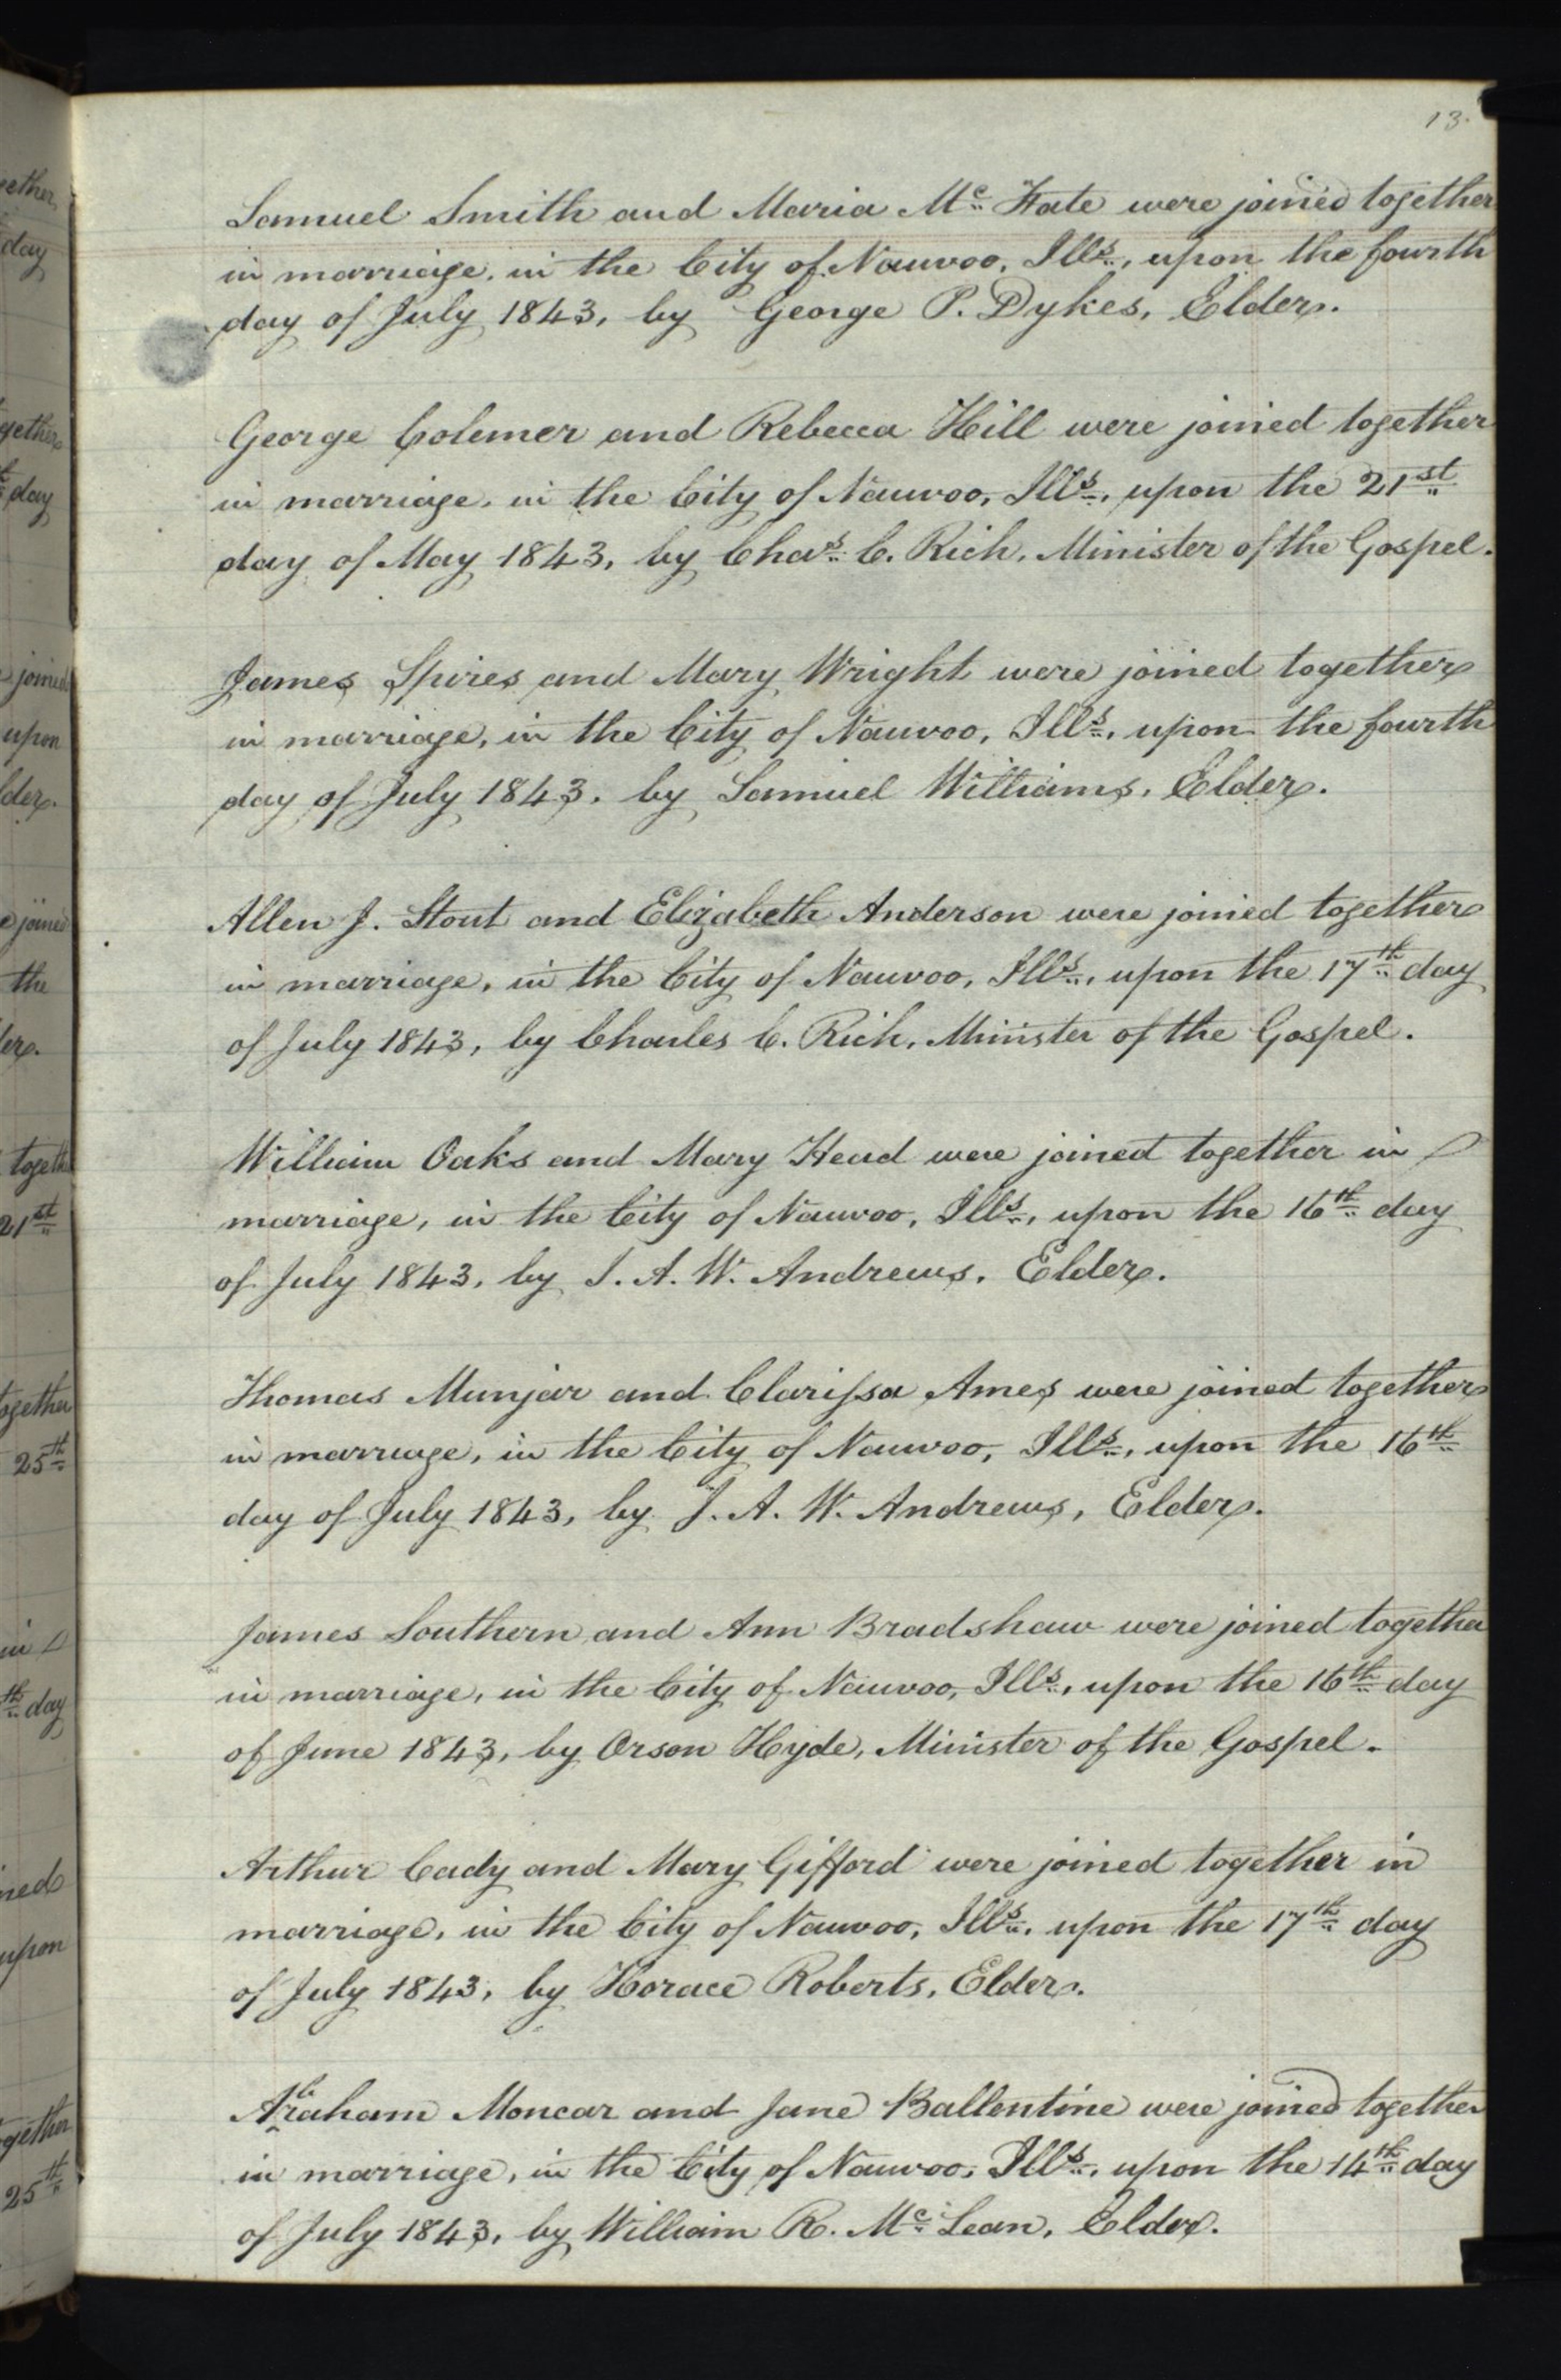 13.
Samuel Smith and Maria Mc. Fate were joined together
in marriage, in the City of Nauvoo, Ills., upon the fourth
day of July 1843, by George P. Dykes, Elder.
George Colemer and Rebecca Hill were joined together
in marriage, in the City of Nauvoo, Ills., upon the 21st
day of May 1843, by Chas. C. Rich, Minister of the Gospel.
James Spires and Mary Wright were joined together
in marriage, in the City of Nauvoo, Ills., upon the fourth
day of July 1843, by Samuel Williams, Elder.
Allen J. Stout and Elizabeth Anderson were joined together
in marriage, in the City of Nauvoo, Ills., upon the 17th day
of July 1843, by Charles C. Rich, Minister of the Gospel.
William Oaks and Mary Head were joined together in
marriage, in the City of Nauvoo, Ills., upon the 16th day
of July 1843, by J. A. W. Andrews, Elder.
Thomas Munjar and Clarissa Ames were joined together
in marriage, in the City of Nauvoo, Ills., upon the 16th
day of July 1843, by J. A. W. Andrews, Elder.
James Southern and Ann Bradshaw were joined together
in marriage, in the City of Nauvoo, Ills., upon the 16th day
of June 1843, by Orson Hyde, Minister of the Gospel.
Arthur Cady and Mary Gifford were joined together in
marriage, in the City of Nauvoo, Ills., upon the 17th day
of July 1843, by Horace Roberts, Elder.
Abraham Moncar and Jane Ballentine were joined together
in marriage, in the City of Nauvoo, Ills., upon the 14th day
of July 1843, by William R. Mc. Lean, Elder.